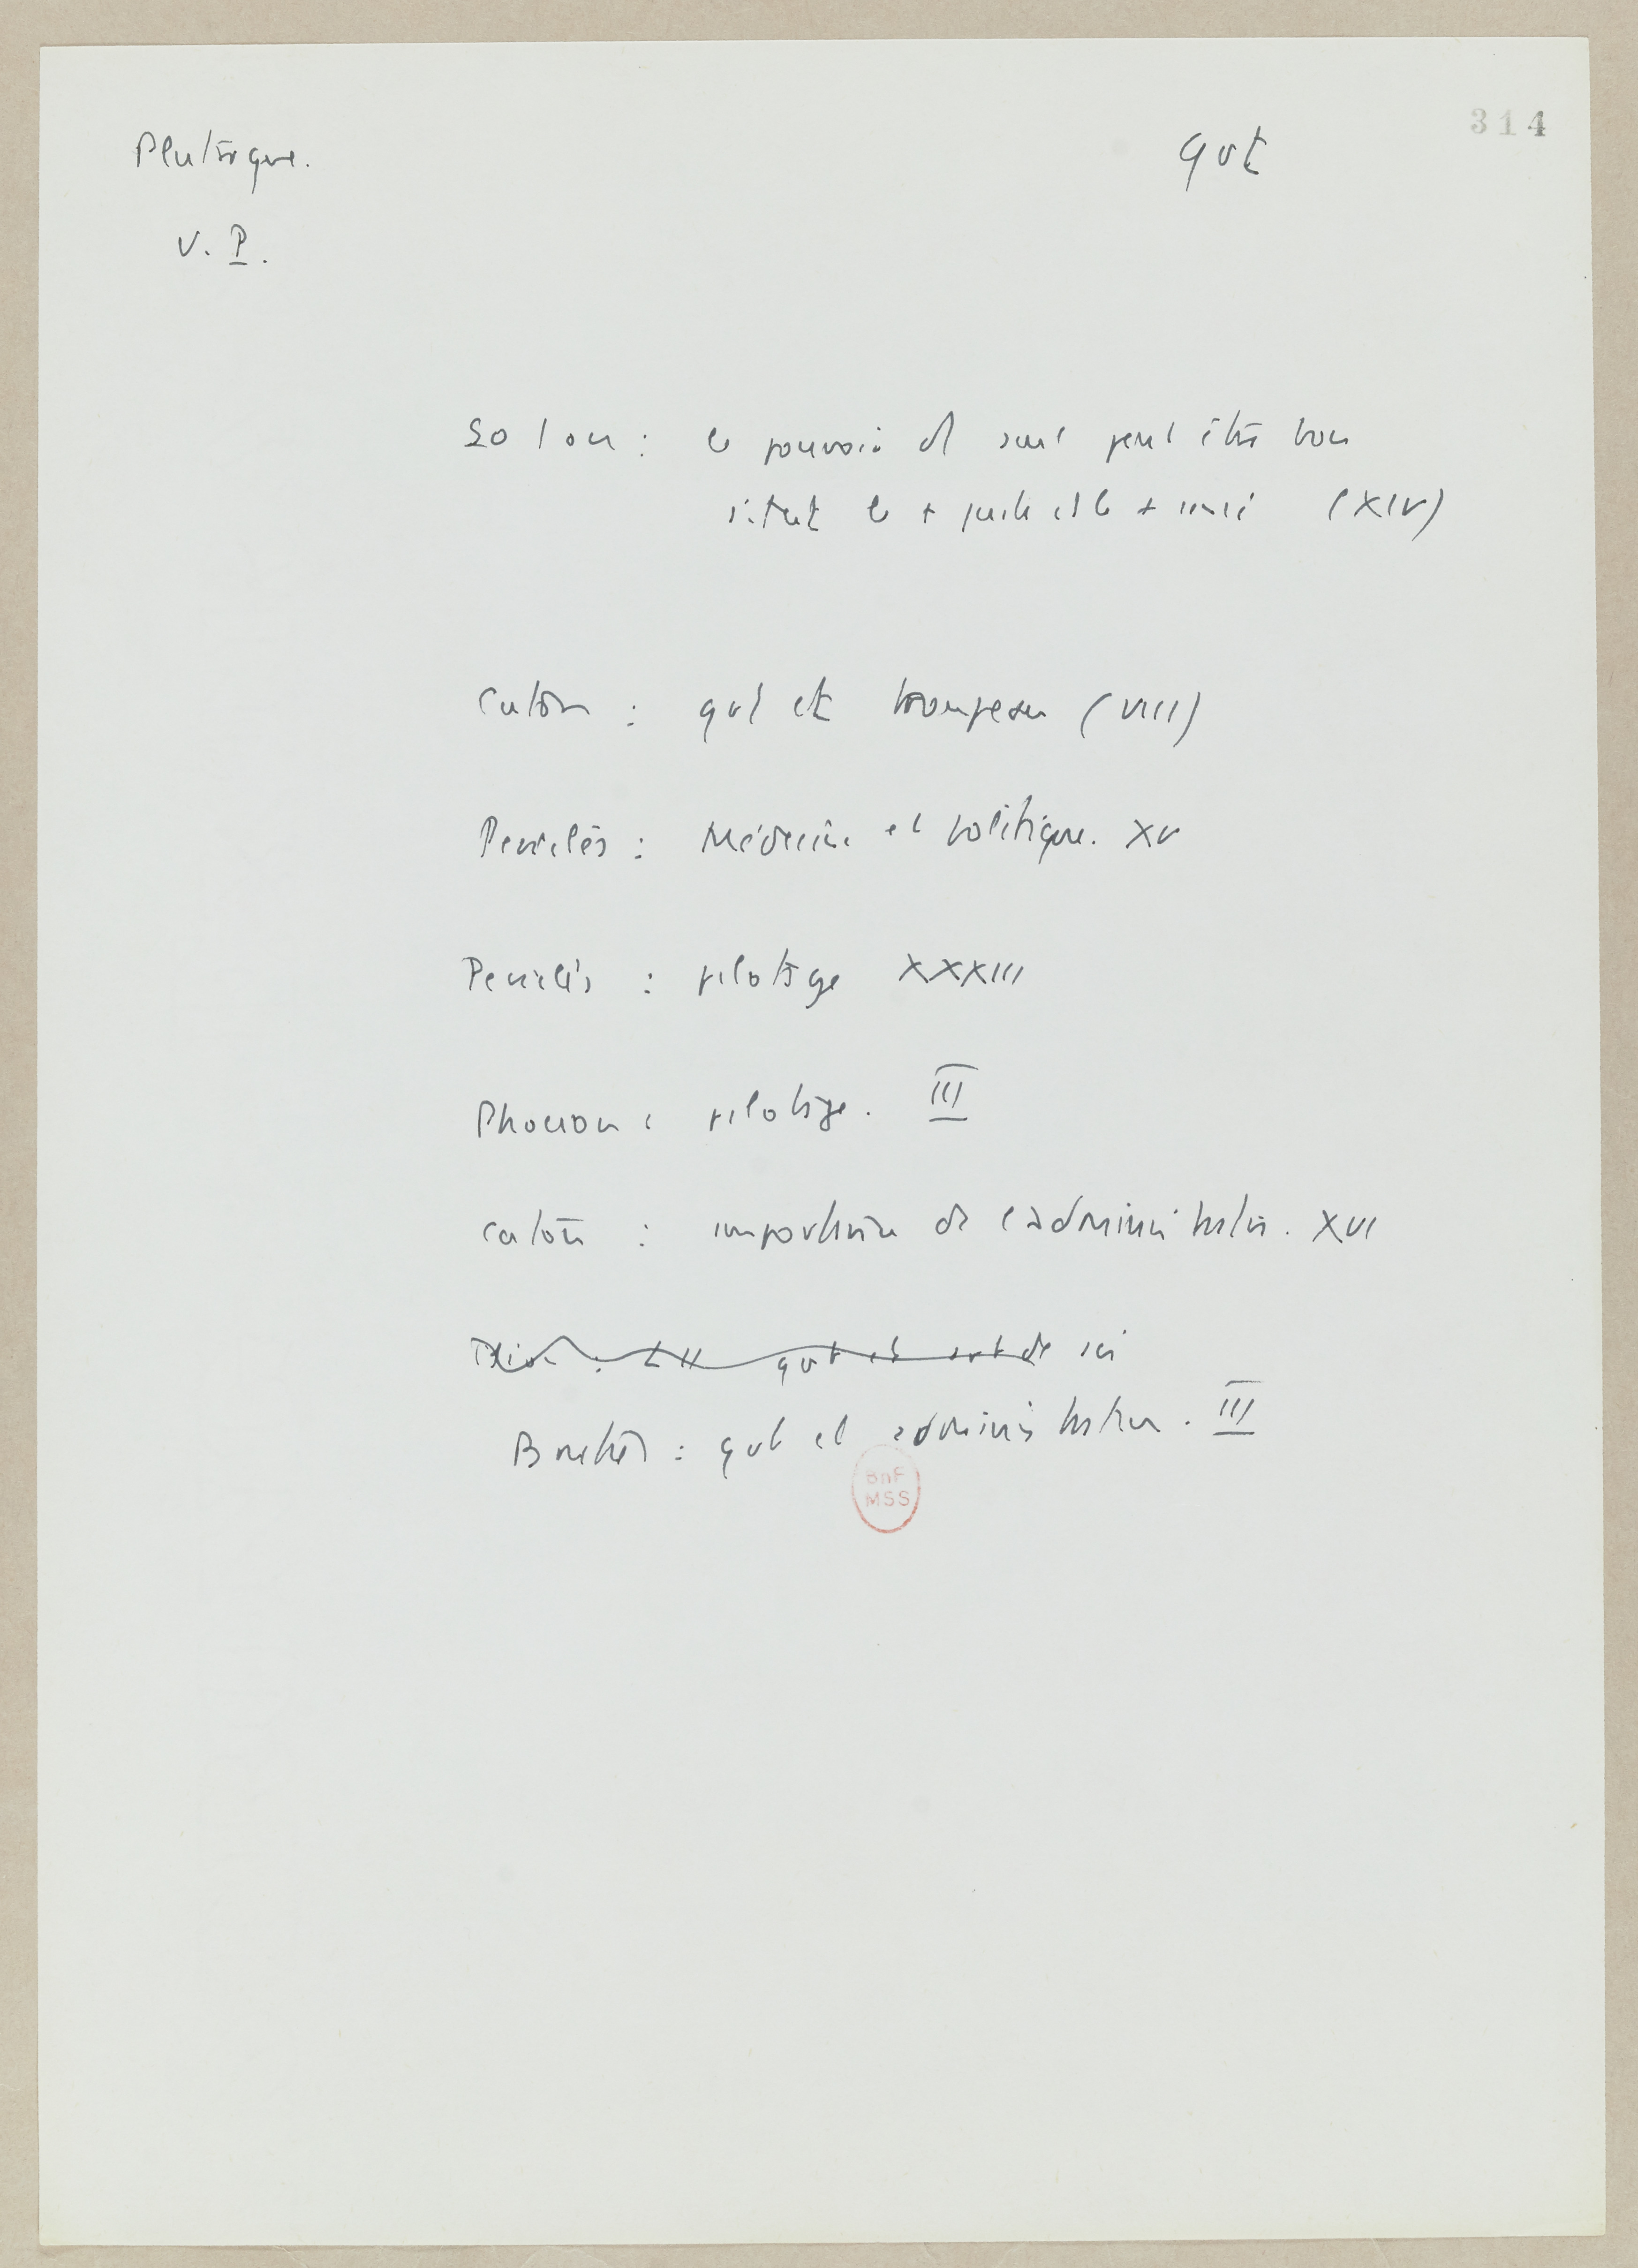 314
Plutarque. gvt
V. P.
Solon : le pouvoir d'1 seul peut être bon
s'il est le + juste et le + (XIV)
Caton : gvt et troupeau (VIII)
Périclès : Médecine et politique. XV
Périclès : pilotage XXXIII
Phocion : pilotage. III
Caton : importance de l'administration. XVI
Dion : gvt et gvt de soi
Brutus : gvt et administration. III
BnF
MSS